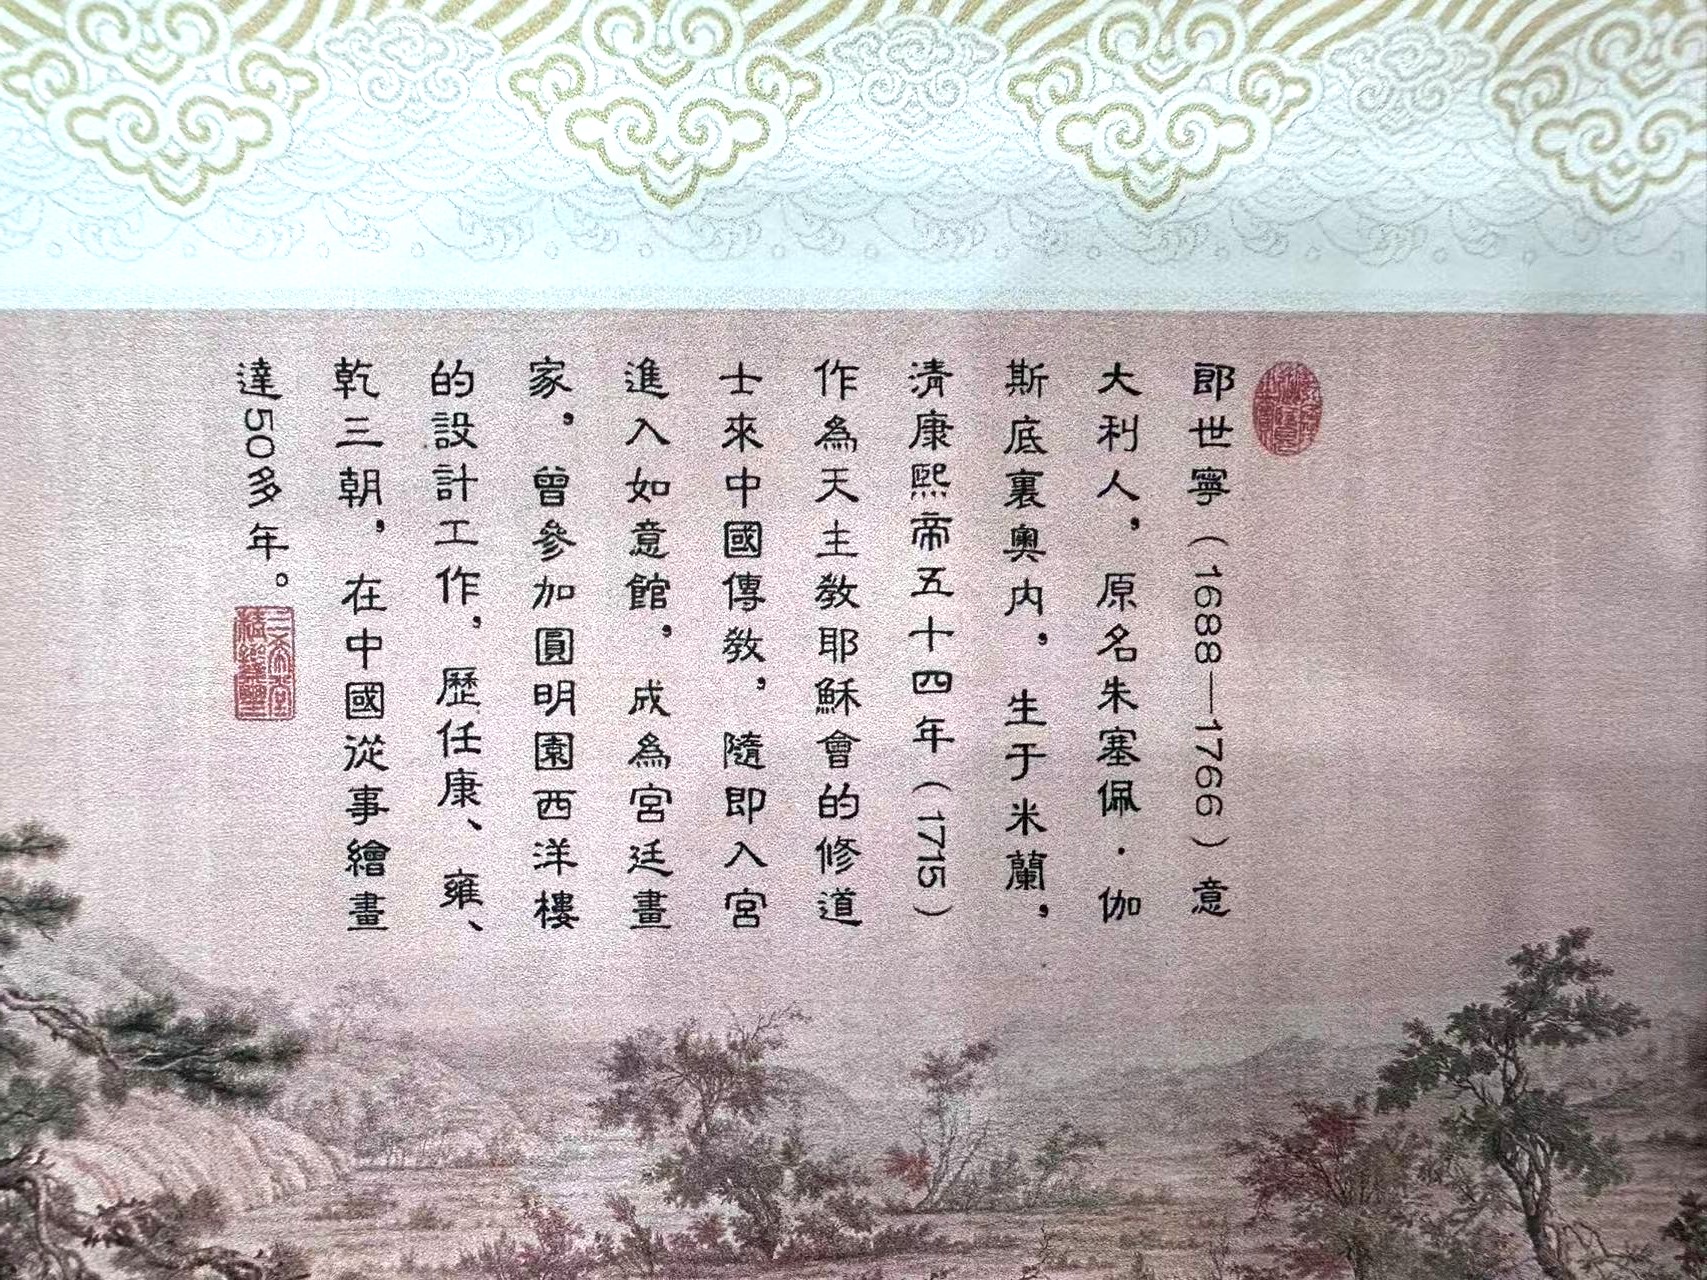 郎世寧（1688—1766）意
大利人，原名朱塞佩·伽
斯底裏奥内，生于米蘭，
清康熙帝五十四年（1715）
作為天主教耶穌會的修道
士來中國傳教，隨即入宮
進入如意館，成為宮廷畫
家，曾參加圓明園西洋樓
的設計工作，歷任康、雍、
乾三朝，在中國從事繪畫
達50多年。